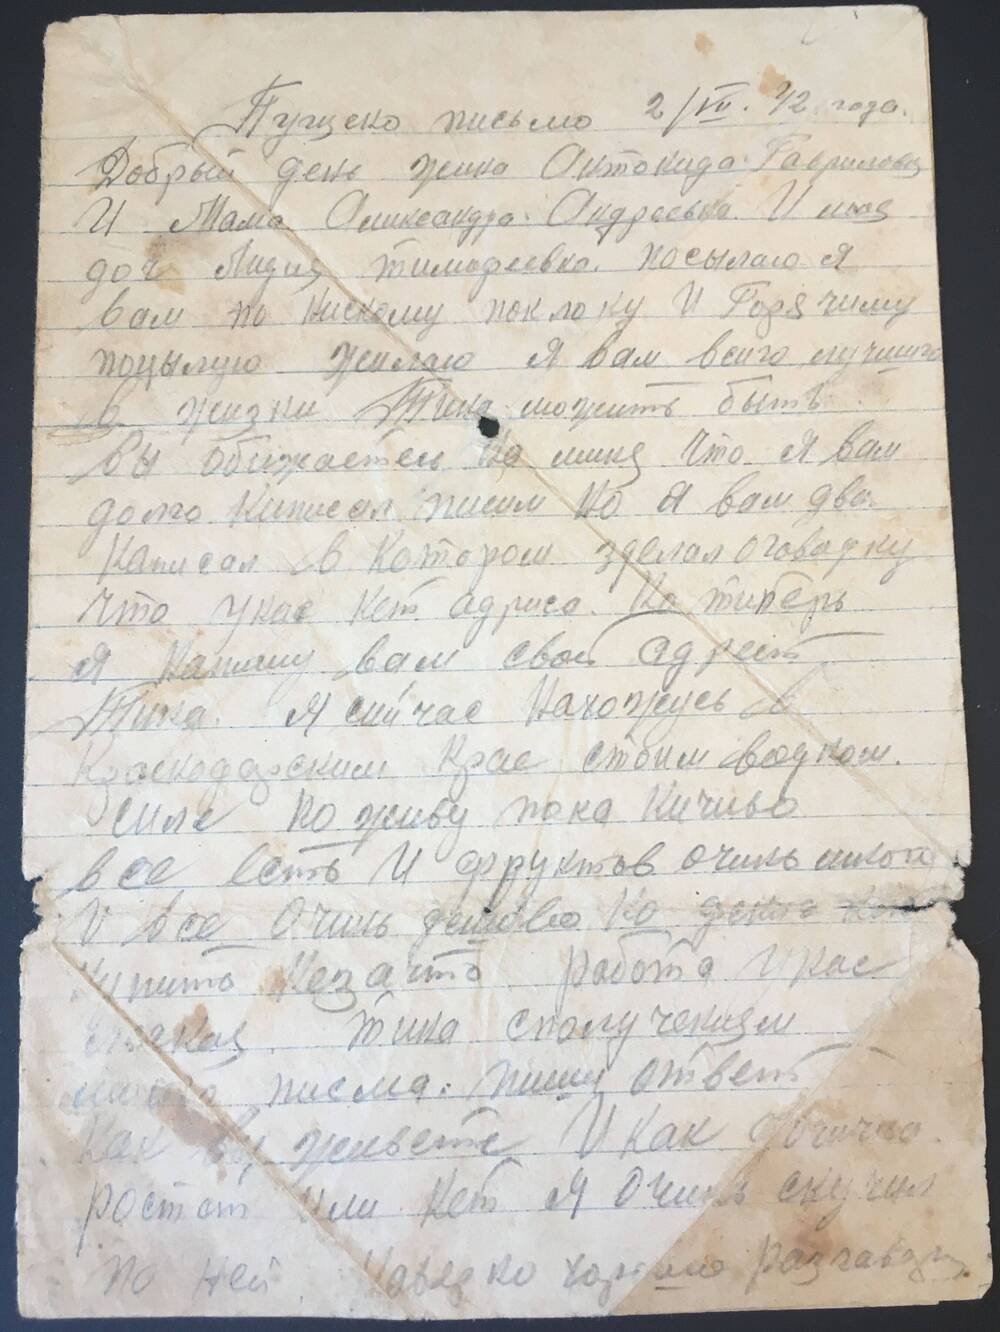 Пущено письмо 2/VII. 42 года.
Добрый день жина Антонида Гавриловна
И Мама Александра Андреевна И моя
доч Лидия тимофеевна посылаю я
вам по нискому поклону И Горячиму
поцылую жилаю я вам всиго лучшиго
в жизни Тина можить быть
вы обижаетесь на миня что я вам
долго ниписал писим но я вам два
написал в котором зделал оговарку
что унас нет адриса. Но типерь
я напишу вам свой адрест
Тина. я сийчас нахожусь в
Краснодарским Крае стоим водном.
силе но живу пока ничиво
все есть И фруктов очинь много
И все очинь дешово но денег
купить незачто работа унас
Тина сполучением
моиго писма. пиши ответ
Как вы живете И как
ростет или нет я очинь скучил
по ней Наверно хорошо разговарив